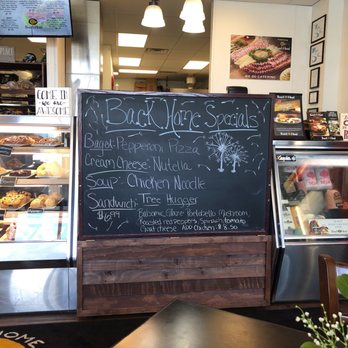 COME IN
we are
AWESOME
Back Home Specials
Bagel: Pepperoni Pizza
Cream Cheese: Nutella
Soup: Chicken Noodle
Sandwich: Tree Hugger
$6.99
Balsamic Glaze Portobello Mushroom,
Roasted red peppers, Spinach, tomato
Goat cheese ADD Chicken: $8.50